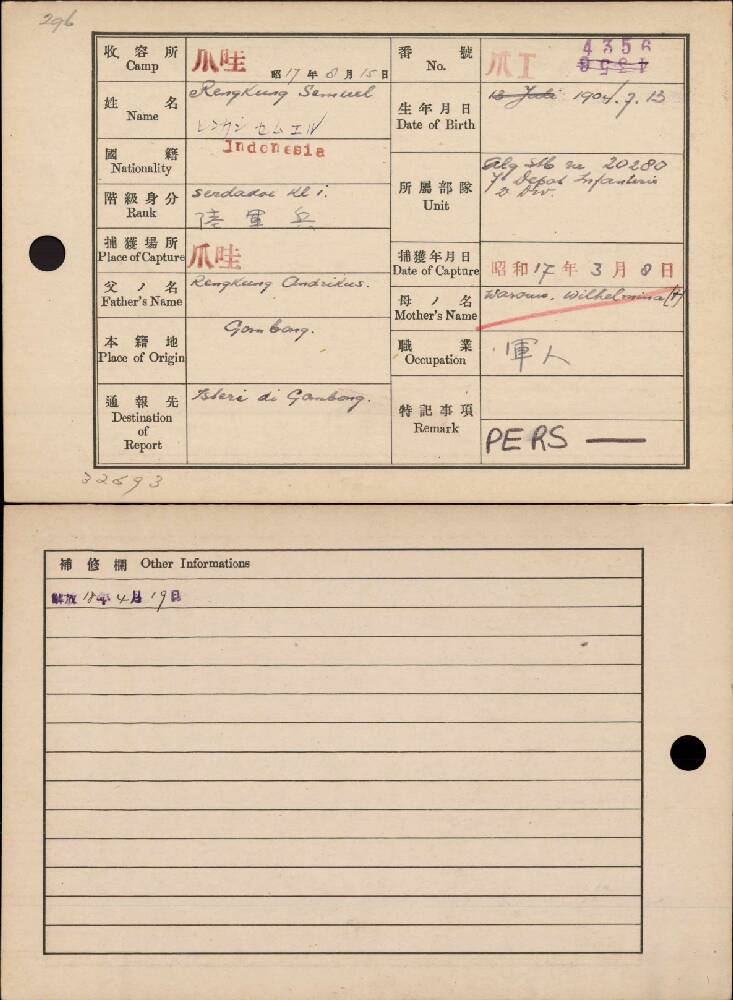 296
收容所 Camp 爪哇 昭17年8月15日
番號 No. 爪I 4356
姓名 Name Rengkung Semuel
レンカン セムエル
生年月日 Date of Birth 13 Juli 1904.7.13
國籍 Nationality Indonesia
階級身分 Rank Serdadoe Kl i.
陸軍兵
所屬部隊 Unit Alg Stb nr. 20280
1e Depot Infanterie
2 Div.
捕獲場所 Place of Capture 爪哇
捕獲年月日 Date of Capture 昭和17年3月8日
父ノ名 Father's Name Rengkung Andrikus.
母ノ名 Mother's Name Warouw, Wilhelmina (†)
本籍地 Place of Origin Gombong.
職業 Occupation 軍人
通報先 Destination of Report Isteri di Gombong.
特記事項 Remark PERS —
32693
補修欄 Other Informations
解放 18年4月19日